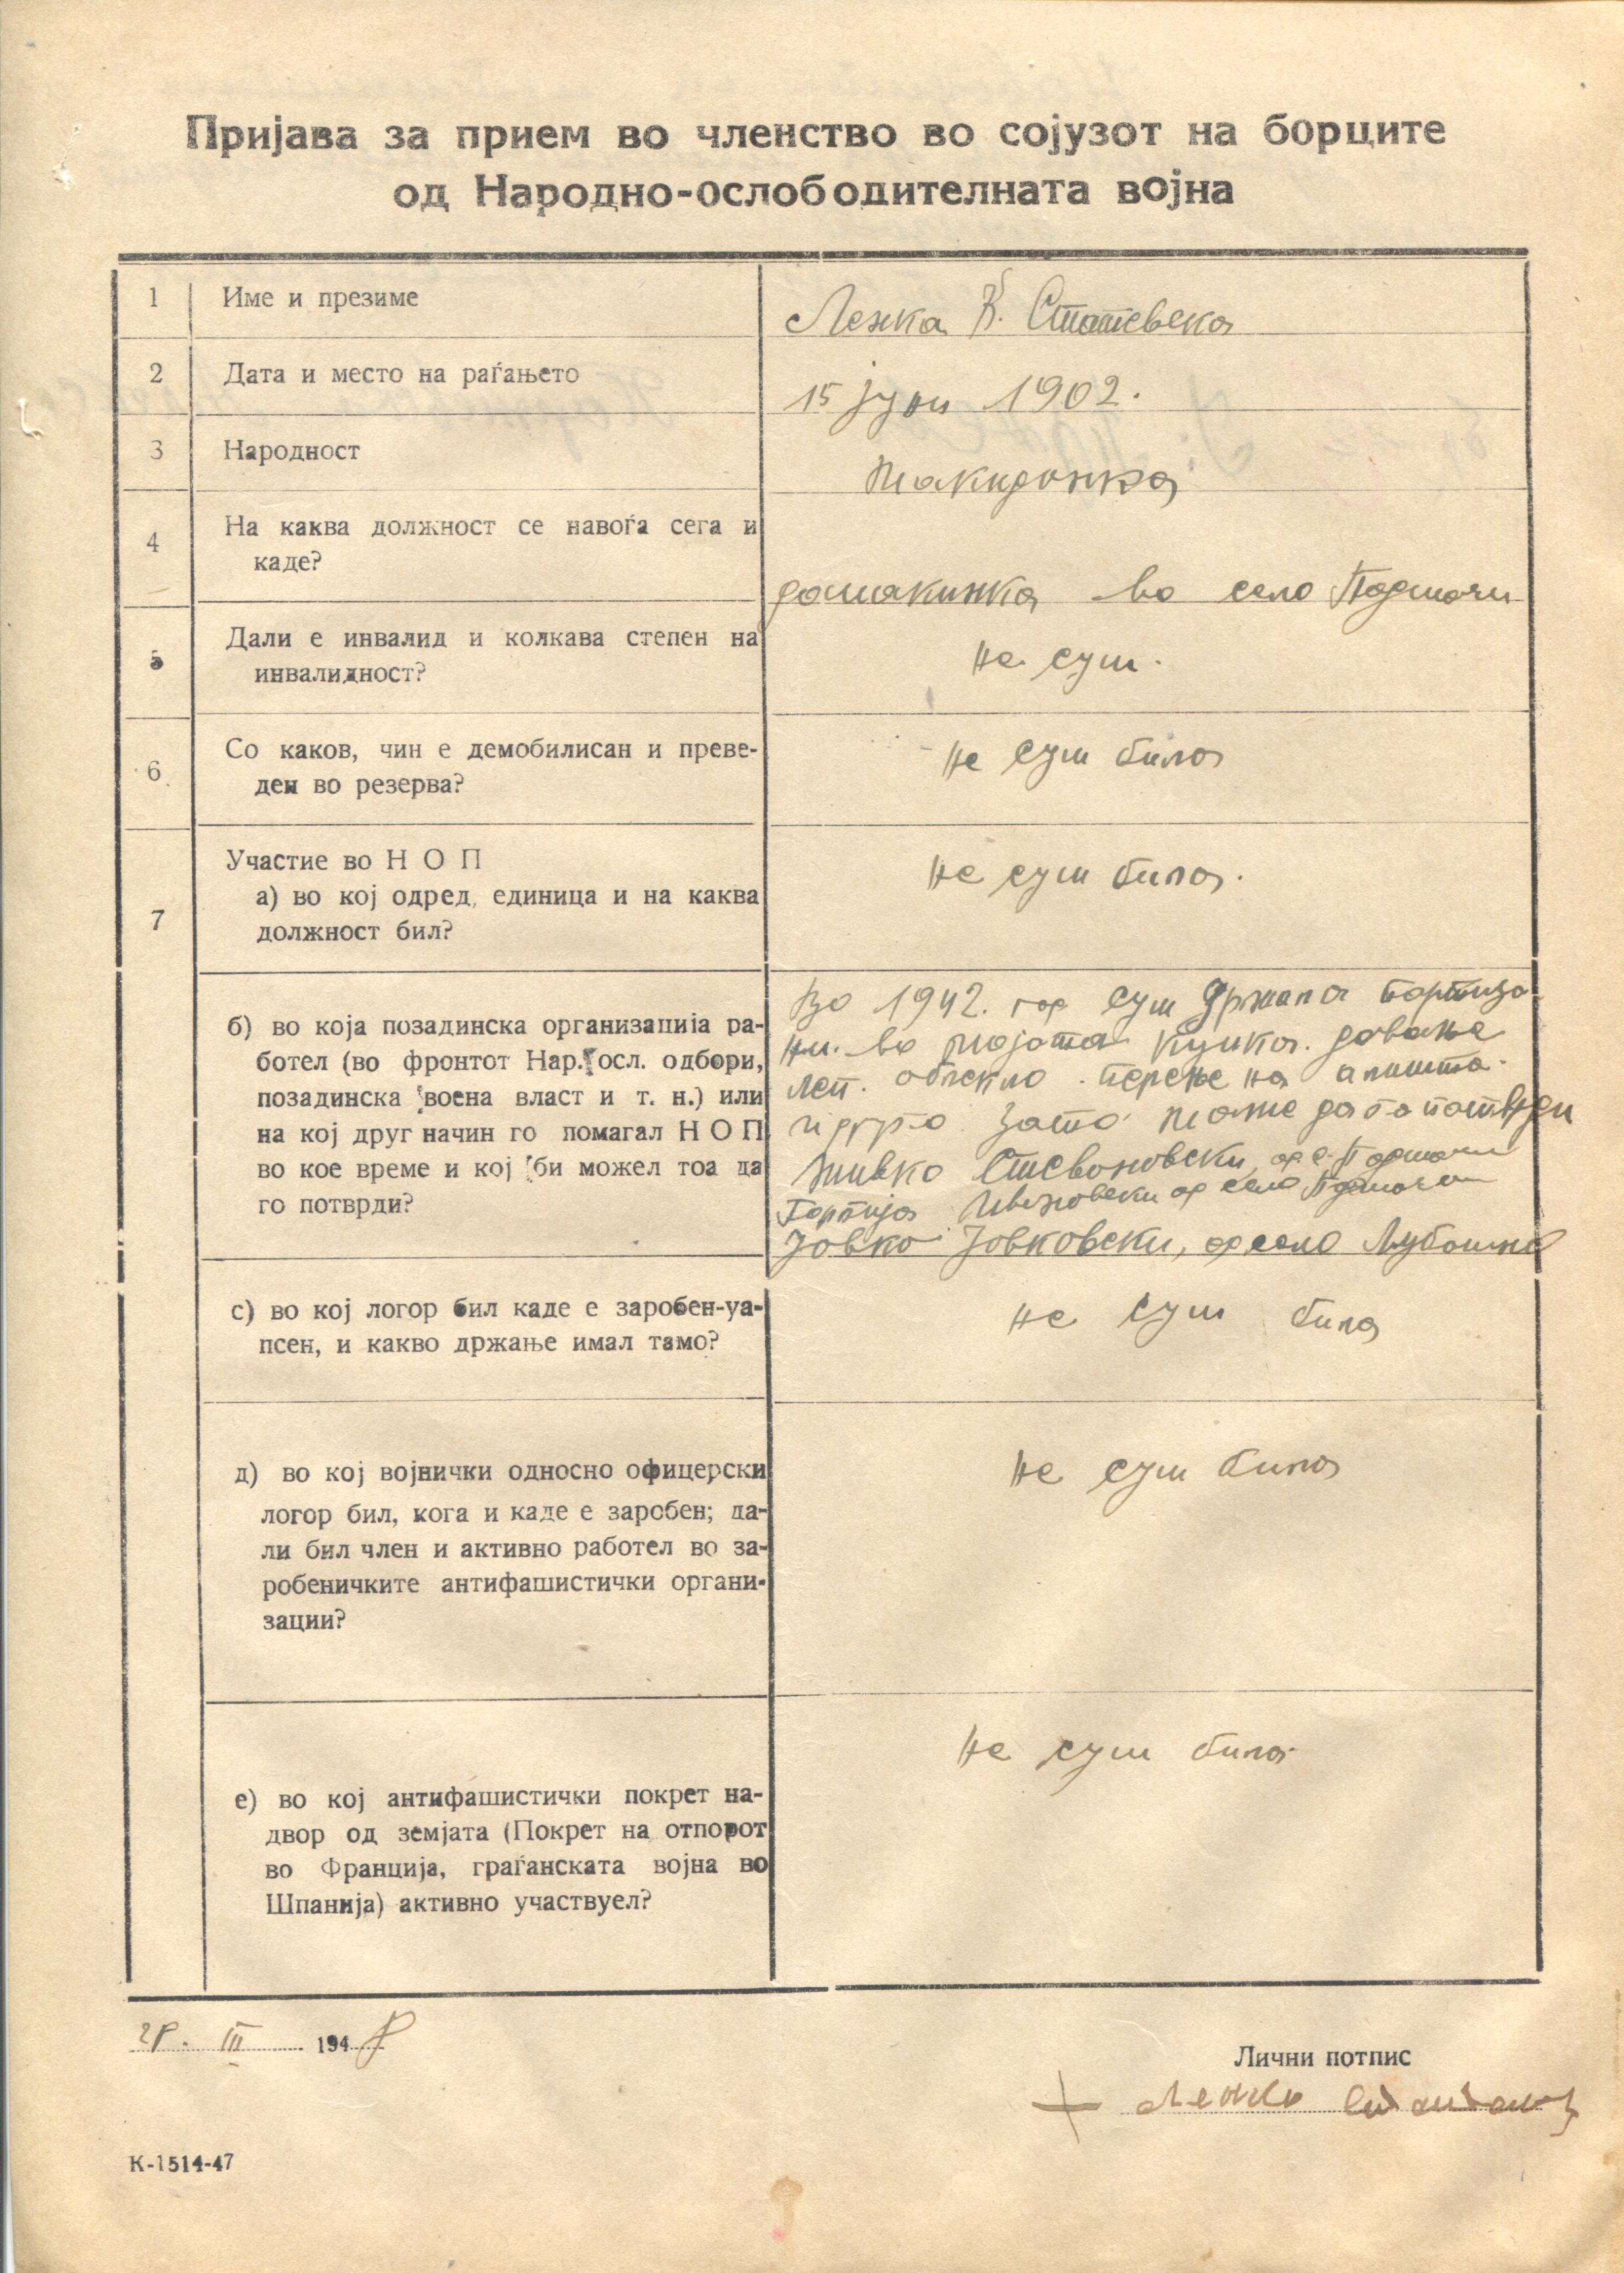 Пријава за прием во членство во сојузот на борците
од Народно-ослободителната војна
1 Име и презиме
Ленка К. Статевска
2 Дата и место на раѓањето
15 јуни 1902.
3 Народност
Макидонка
4 На каква должност се навоѓа сега и
каде?
домакинка во село Подмочи
5 Дали е инвалид и колкава степен на
инвалидност?
Не сум.
6 Со каков, чин е демобилисан и преве-
ден во резерва?
Не сум била
7 Участие во Н О П
а) во кој одред, единица и на каква
должност бил?
Не сум била.
б) во која позадинска организација ра-
ботел (во фронтот Нар. осл. одбори,
позадинска воена власт и т. н.) или
на кој друг начин го помагал Н О П
во кое време и кој би можел тоа да
го потврди?
Во 1942. год сум држала партиза
ни. во мојата куќа. давање
леп. облекло. перење на алишта.
и друго. Зато може да го потврди
Живко Стевановски, од с. Подмочи
Ивановски од село Подмочи
Јовко Јовковски, од село
с) во кој логор бил каде е заробен-уа-
псен, и какво држање имал тамо?
не сум била
д) во кој војнички односно офицерски
логор бил, кога и каде е заробен; да-
ли бил член и активно работел во за-
робеничките антифашистички органи-
зации?
Не сум била
е) во кој антифашистички покрет на-
двор од земјата (Покрет на отпорот
во Франција, граѓанската војна во
Шпанија) активно участвуел?
Не сум била.
28. III 1948
Лични потпис
+ Ленка
К-1514-47